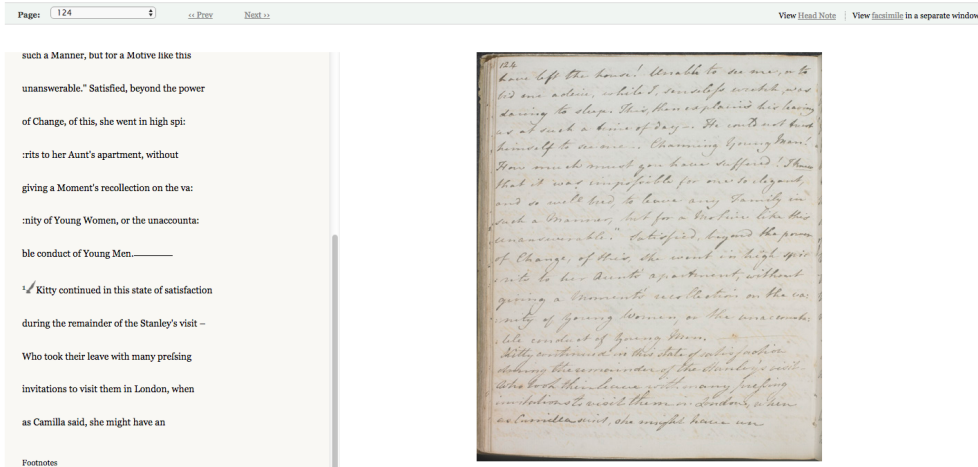 Page: 124 << Prev Next >> View Head Note | View facsimile in a separate window
such a Manner, but for a Motive like this
unanswerable." Satisfied, beyond the power
of Change, of this, she went in high spi:
:rits to her Aunt's apartment, without
giving a Moment's recollection on the va:
:nity of Young Women, or the unaccounta:
ble conduct of Young Men.————
1 Kitty continued in this state of satisfaction
during the remainder of the Stanley's visit –
Who took their leave with many preſsing
invitations to visit them in London, when
as Camilla said, she might have an
Footnotes
124
have left the house! Unable to see me, or to
bid me adeiu, while I, senseleſs wretch, was
daring to sleep! This, then explains his leaving
us at such a time of day –. He could not trust
himself to see me –. Charming Young Man!
How much must you have suffered! I knew
that it was impoſsible for one so elegant,
and so well bred, to leave any Family in
such a Manner, but for a Motive like this
unanswerable." Satisfied, beyond the power
of Change, of this, she went in high spi:
:rits to her Aunt's apartment, without
giving a Moment's recollection on the va:
:nity of Young Women, or the unaccounta:
ble conduct of Young Men.
Kitty continued in this state of satisfaction
during the remainder of the Stanley's visit –
Who took their leave with many preſsing
invitations to visit them in London, when
as Camilla said, she might have an